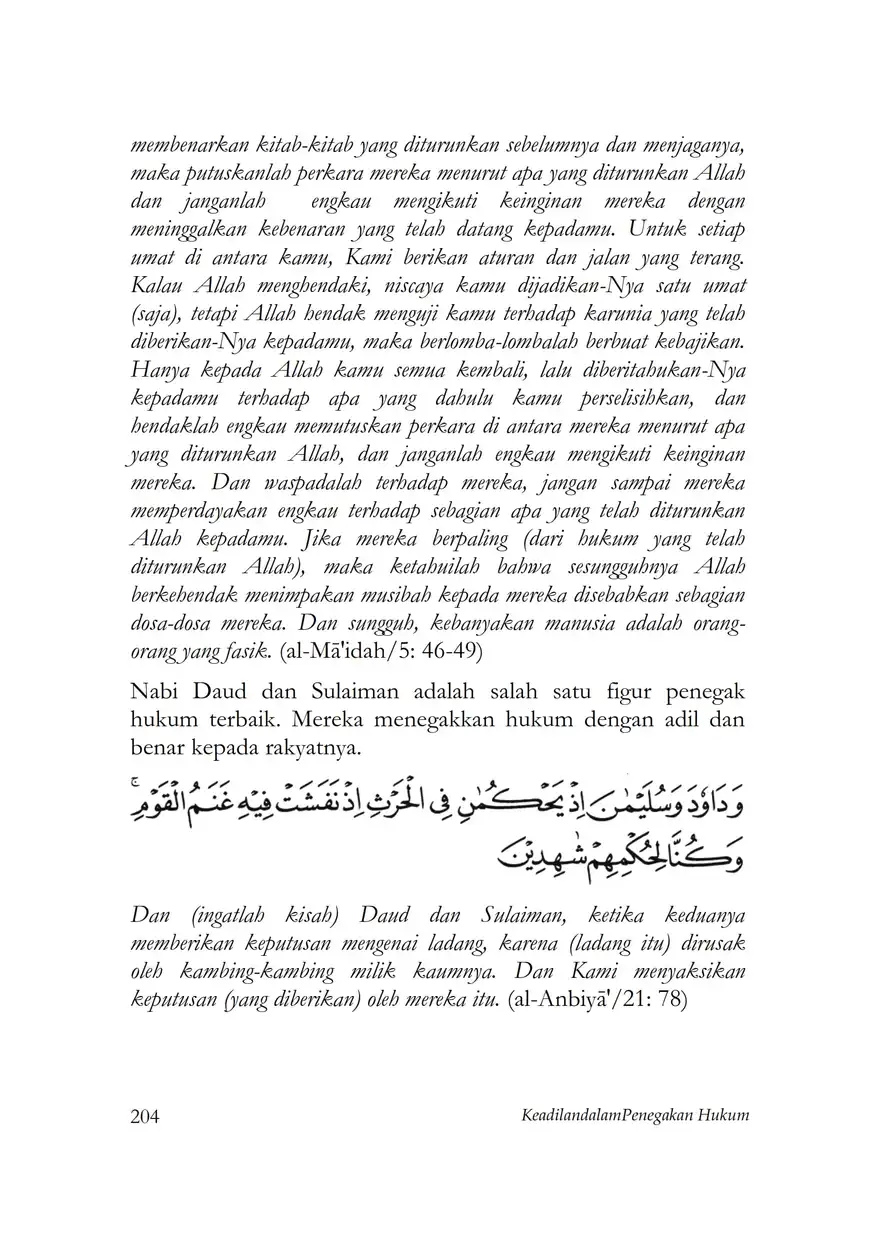 membenarkan kitab-kitab yang diturunkan sebelumnya dan menjaganya,
maka putuskanlah perkara mereka menurut apa yang diturunkan Allah
dan janganlah engkau mengikuti keinginan mereka dengan
meninggalkan kebenaran yang telah datang kepadamu. Untuk setiap
umat di antara kamu, Kami berikan aturan dan jalan yang terang.
Kalau Allah menghendaki, niscaya kamu dijadikan-Nya satu umat
(saja), tetapi Allah hendak menguji kamu terhadap karunia yang telah
diberikan-Nya kepadamu, maka berlomba-lombalah berbuat kebajikan.
Hanya kepada Allah kamu semua kembali, lalu diberitahukan-Nya
kepadamu terhadap apa yang dahulu kamu perselisihkan, dan
hendaklah engkau memutuskan perkara di antara mereka menurut apa
yang diturunkan Allah, dan janganlah engkau mengikuti keinginan
mereka. Dan waspadalah terhadap mereka, jangan sampai mereka
memperdayakan engkau terhadap sebagian apa yang telah diturunkan
Allah kepadamu. Jika mereka berpaling (dari hukum yang telah
diturunkan Allah), maka ketahuilah bahwa sesungguhnya Allah
berkehendak menimpakan musibah kepada mereka disebabkan sebagian
dosa-dosa mereka. Dan sungguh, kebanyakan manusia adalah orang-
orang yang fasik. (al-Mā'idah/5: 46-49)
Nabi Daud dan Sulaiman adalah salah satu figur penegak
hukum terbaik. Mereka menegakkan hukum dengan adil dan
benar kepada rakyatnya.
وَدَاوٗدَ وَسُلَيْمٰنَ اِذْ يَحْكُمٰنِ فِى الْحَرْثِ اِذْ نَفَشَتْ فِيْهِ غَنَمُ الْقَوْمِۚ
وَكُنَّا لِحُكْمِهِمْ شٰهِدِيْنَ
Dan (ingatlah kisah) Daud dan Sulaiman, ketika keduanya
memberikan keputusan mengenai ladang, karena (ladang itu) dirusak
oleh kambing-kambing milik kaumnya. Dan Kami menyaksikan
keputusan (yang diberikan) oleh mereka itu. (al-Anbiyā'/21: 78)
204 KeadilandalamPenegakan Hukum